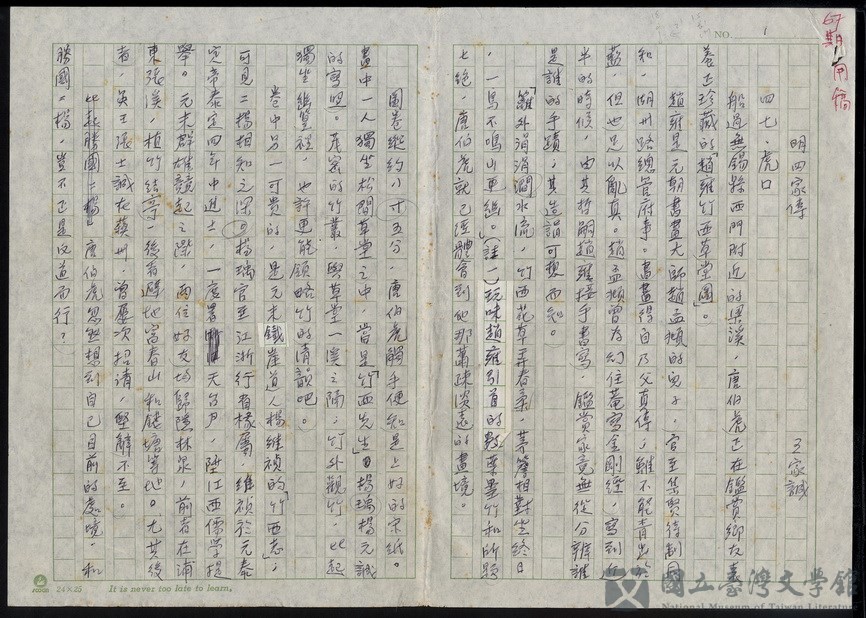 67期用稿
NO. 1
明四家傳
王家誠
四七、虎口
船過無錫縣西門附近的梁溪，唐伯虎正在鑑賞鄉友袁
養正珍藏的「趙雍竹西草堂圖」。
趙雍是元朝書畫大師趙孟頫的兒子，官至集賢待制同
知，湖州路總管府事。書畫得自乃父真傳；雖不能青出於
藍，但也足以亂真。趙孟頫曾為幻住菴寫金剛經，寫到近
半的時候，由其哲嗣趙雍接手書寫，鑑賞家竟無從分辨誰
是誰的手蹟；其造詣可想而知。
「籬外涓涓澗水流，竹西花草弄春柔，茅簷相對坐終日
，一鳥不鳴山更幽。」（註一）玩味趙雍引首的數葉墨竹和所題
七絕，唐伯虎就已經體會到他那蕭疎淡遠的畫境。
圖卷縱約八寸五分，唐伯虎觸手便知是上好的宋紙。
畫中一人獨坐松間草堂之中，當是「竹西先生」楊瑀楊元誠
的寫照。茂密的竹叢，與草堂一溪之隔；竹外觀竹，比起
獨坐幽篁裡，也許更能領略竹的清韻吧。
卷中另一可貴的，是元末鐵崖道人楊維禎的「竹西志」，
可見二楊相知之深。楊瑀官至江浙行省掾屬，維禎於元泰
定帝泰定四年中進士，一度署天台尹，陞江西儒學提
舉。元末群雄競起之際，兩位好友均歸隱林泉，前者在浦
東張溪，植竹結亭，後者避地富春山和錢塘等地。尤其後
者，吳王張士誠在蘇州，曾屢次招請，堅辭不至。
比起勝國二楊，唐伯虎忽然想到自己目前的處境，和
勝國二楊，豈不正是反道而行？
24×25
It is never too late to learn.
國立臺灣文學館
National Museum of Taiwan Literature